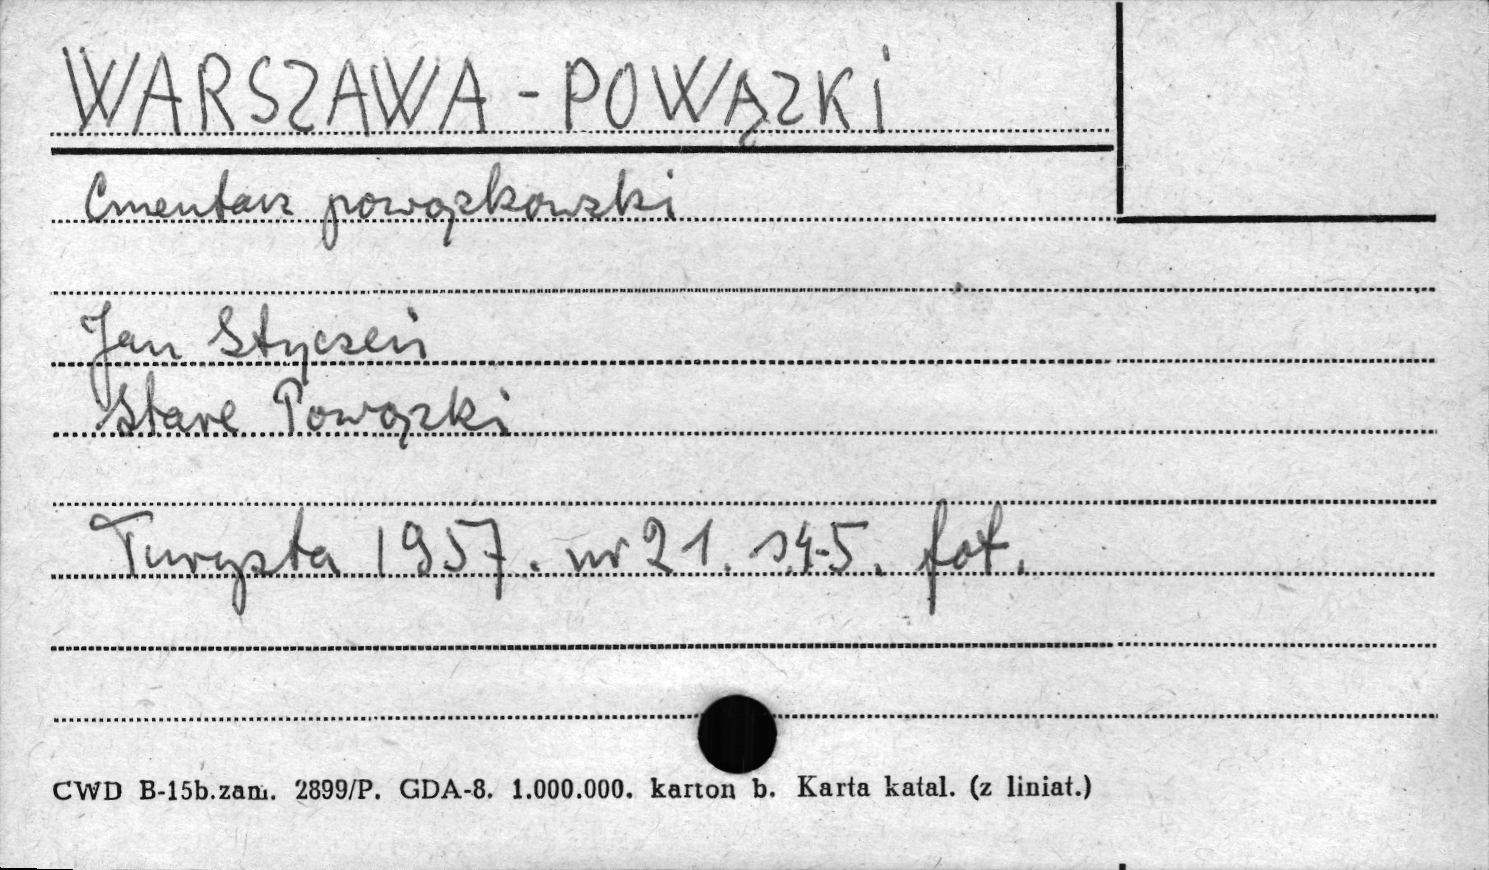 WARSZAWA - POWĄZKI
Cmentarz powązkowski
Jan Styczeń
Stare Powązki
Turysta 1957. nr 21. s.4-5. fot.
CWD B-15b.zam. 2899/P. GDA-8. 1.000.000. karton b. Karta katal. (z liniat.)